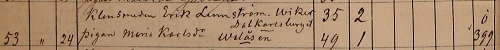 Klensmeden Erik Lennström. Wiker 35 2 0
Dalkarlsberget
53 " 24 Pigan Maria Karlsdr Wilåsen 49 1 399